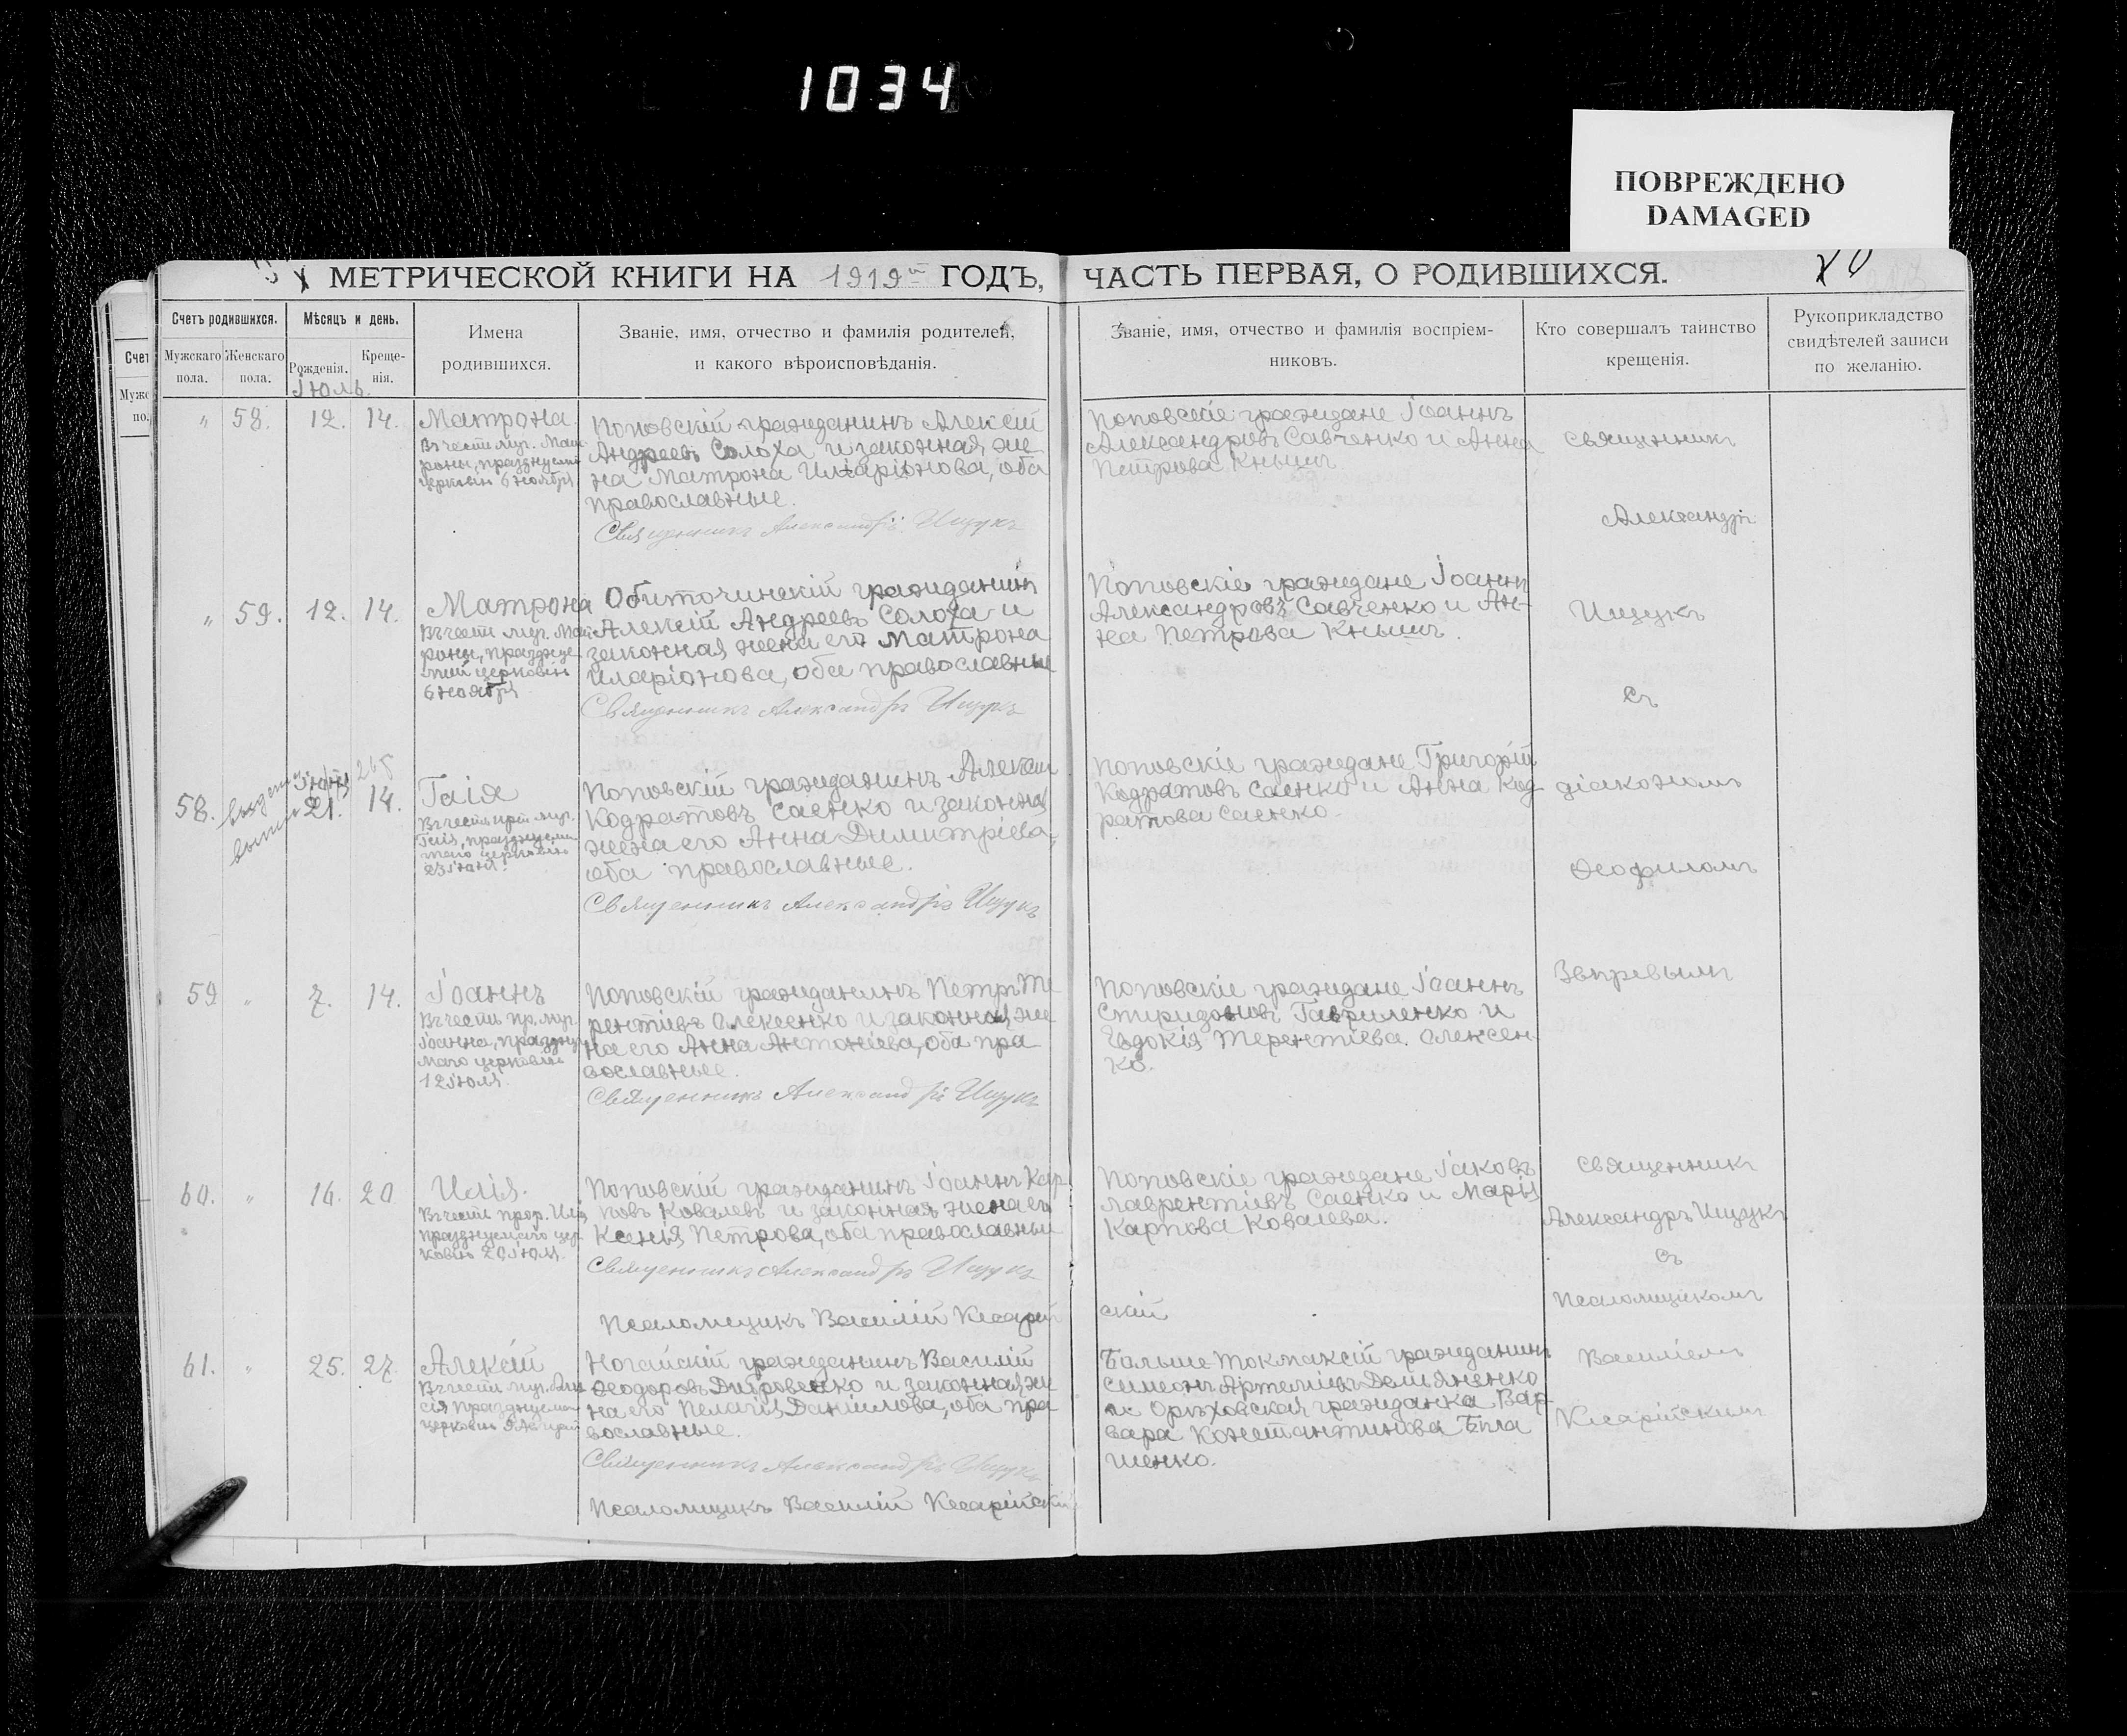 1034
ПОВРЕЖДЕНО
DAMAGED
МЕТРИЧЕСКОЙ КНИГИ НА 1919й ГОДЪ,
ЧАСТЬ ПЕРВАЯ, О РОДИВШИХСЯ.
Счетъ родившихся.
Мужскаго пола.
Женскаго пола.
Мѣсяцъ и день.
Рожденія.
Креще-
нія.
Имена
родившихся.
Званіе, имя, отчество и фамилія родителей,
и какого вѣроисповѣданія.
Званіе, имя, отчество и фамилія воспріем-
никовъ.
Кто совершалъ таинство
крещенія.
Рукоприкладство
свидѣтелей записи
по желанію.
Счет
Мужс
по.
Іюль.
" 58. 12. 14.
Матрона
Въ честь муц. Мат
роны, празднуемой
церковію 6 ноября
Поповскій гражданинъ Алексій
Андреевъ Солоха и законная же
на Матрона Иларіонова, оба
православные.
Священникъ Александръ Ищукъ
Поповскіе граждане Іоаннъ
Александровъ Савченко и Анна
Петрова Кнышъ
Священникъ
Александръ
" 59. 12. 14.
Матрона
Въ честь муц. Мат
роны, праздну
емой церковію
6 ноября
Обиточинскій гражданинъ
Алексій Андреевъ Солоха и
законная жена его Матрона
Иларіонова, оба православные
Священникъ Александръ Ищукъ
Поповскіе граждане Іоаннъ
Александровъ Савченко и Ан-
на Петрова Кнышъ.
Ищукъ
съ
58. Іюня 21. 14.
Гаія
Въ честь муч.
Гаія, празднуе
маго церковію
23 Іюня.
Поповскій гражданинъ Алексій
Кодратовъ Саенко и законная
жена его Анна Димитріева,
оба православные.
Священникъ Александръ Ищукъ
Поповскіе граждане Григорій
Кодратовъ Саенко и Анна Код-
ратова Саенко.
діакономъ
Ѳеофиломъ
59 " 7. 14.
Іоаннъ
Въ честь пр. муч.
Іоанна, праздну
маго церковію
12 Іюля.
Поповскій гражданинъ Петръ Те
рентіевъ Алексенко и законная же
на его Анна Антоніева, оба пра
вославные.
Священникъ Александръ Ищукъ
Поповскіе граждане Іоаннъ
Спиридоновъ Гавриленко и
Евдокія Терентіева Алексен
ко.
Звпревымъ
60. " 16. 20
Илія.
Въ честь прор. Иліи
празднуемаго цер
ковію 20 Іюля.
Поповскій гражданинъ Іоаннъ Кар
повъ Ковалевъ и законная жена его
Ксенія Петрова, оба православные
Священникъ Александръ Ищукъ
Псаломщикъ Василій Кесарій
скій
Поповскіе граждане Іаковъ
Лаврентіевъ Саенко и Марія
Карпова Ковалева.
Священникъ
Александръ Ищукъ
съ
Псаломщикомъ
61. " 25. 27.
Алексій
Въ честь муч. Алек
сія празднуемаго
церковію 9 Августа
Ногайскій гражданинъ Василій
Ѳеодоровъ Дубровенко и законная же
на его Пелагія Даніилова, оба пра
вославные.
Священникъ Александръ Ищукъ
Псаломщикъ Василій Кесарійскій
Больше-Токмакскій гражданинъ
Симеонъ Артеміевъ Демьяненко
и Орѣховская гражданка Вар-
вара Константинова Бѣла
шенко.
Василіемъ
Кесарійскимъ